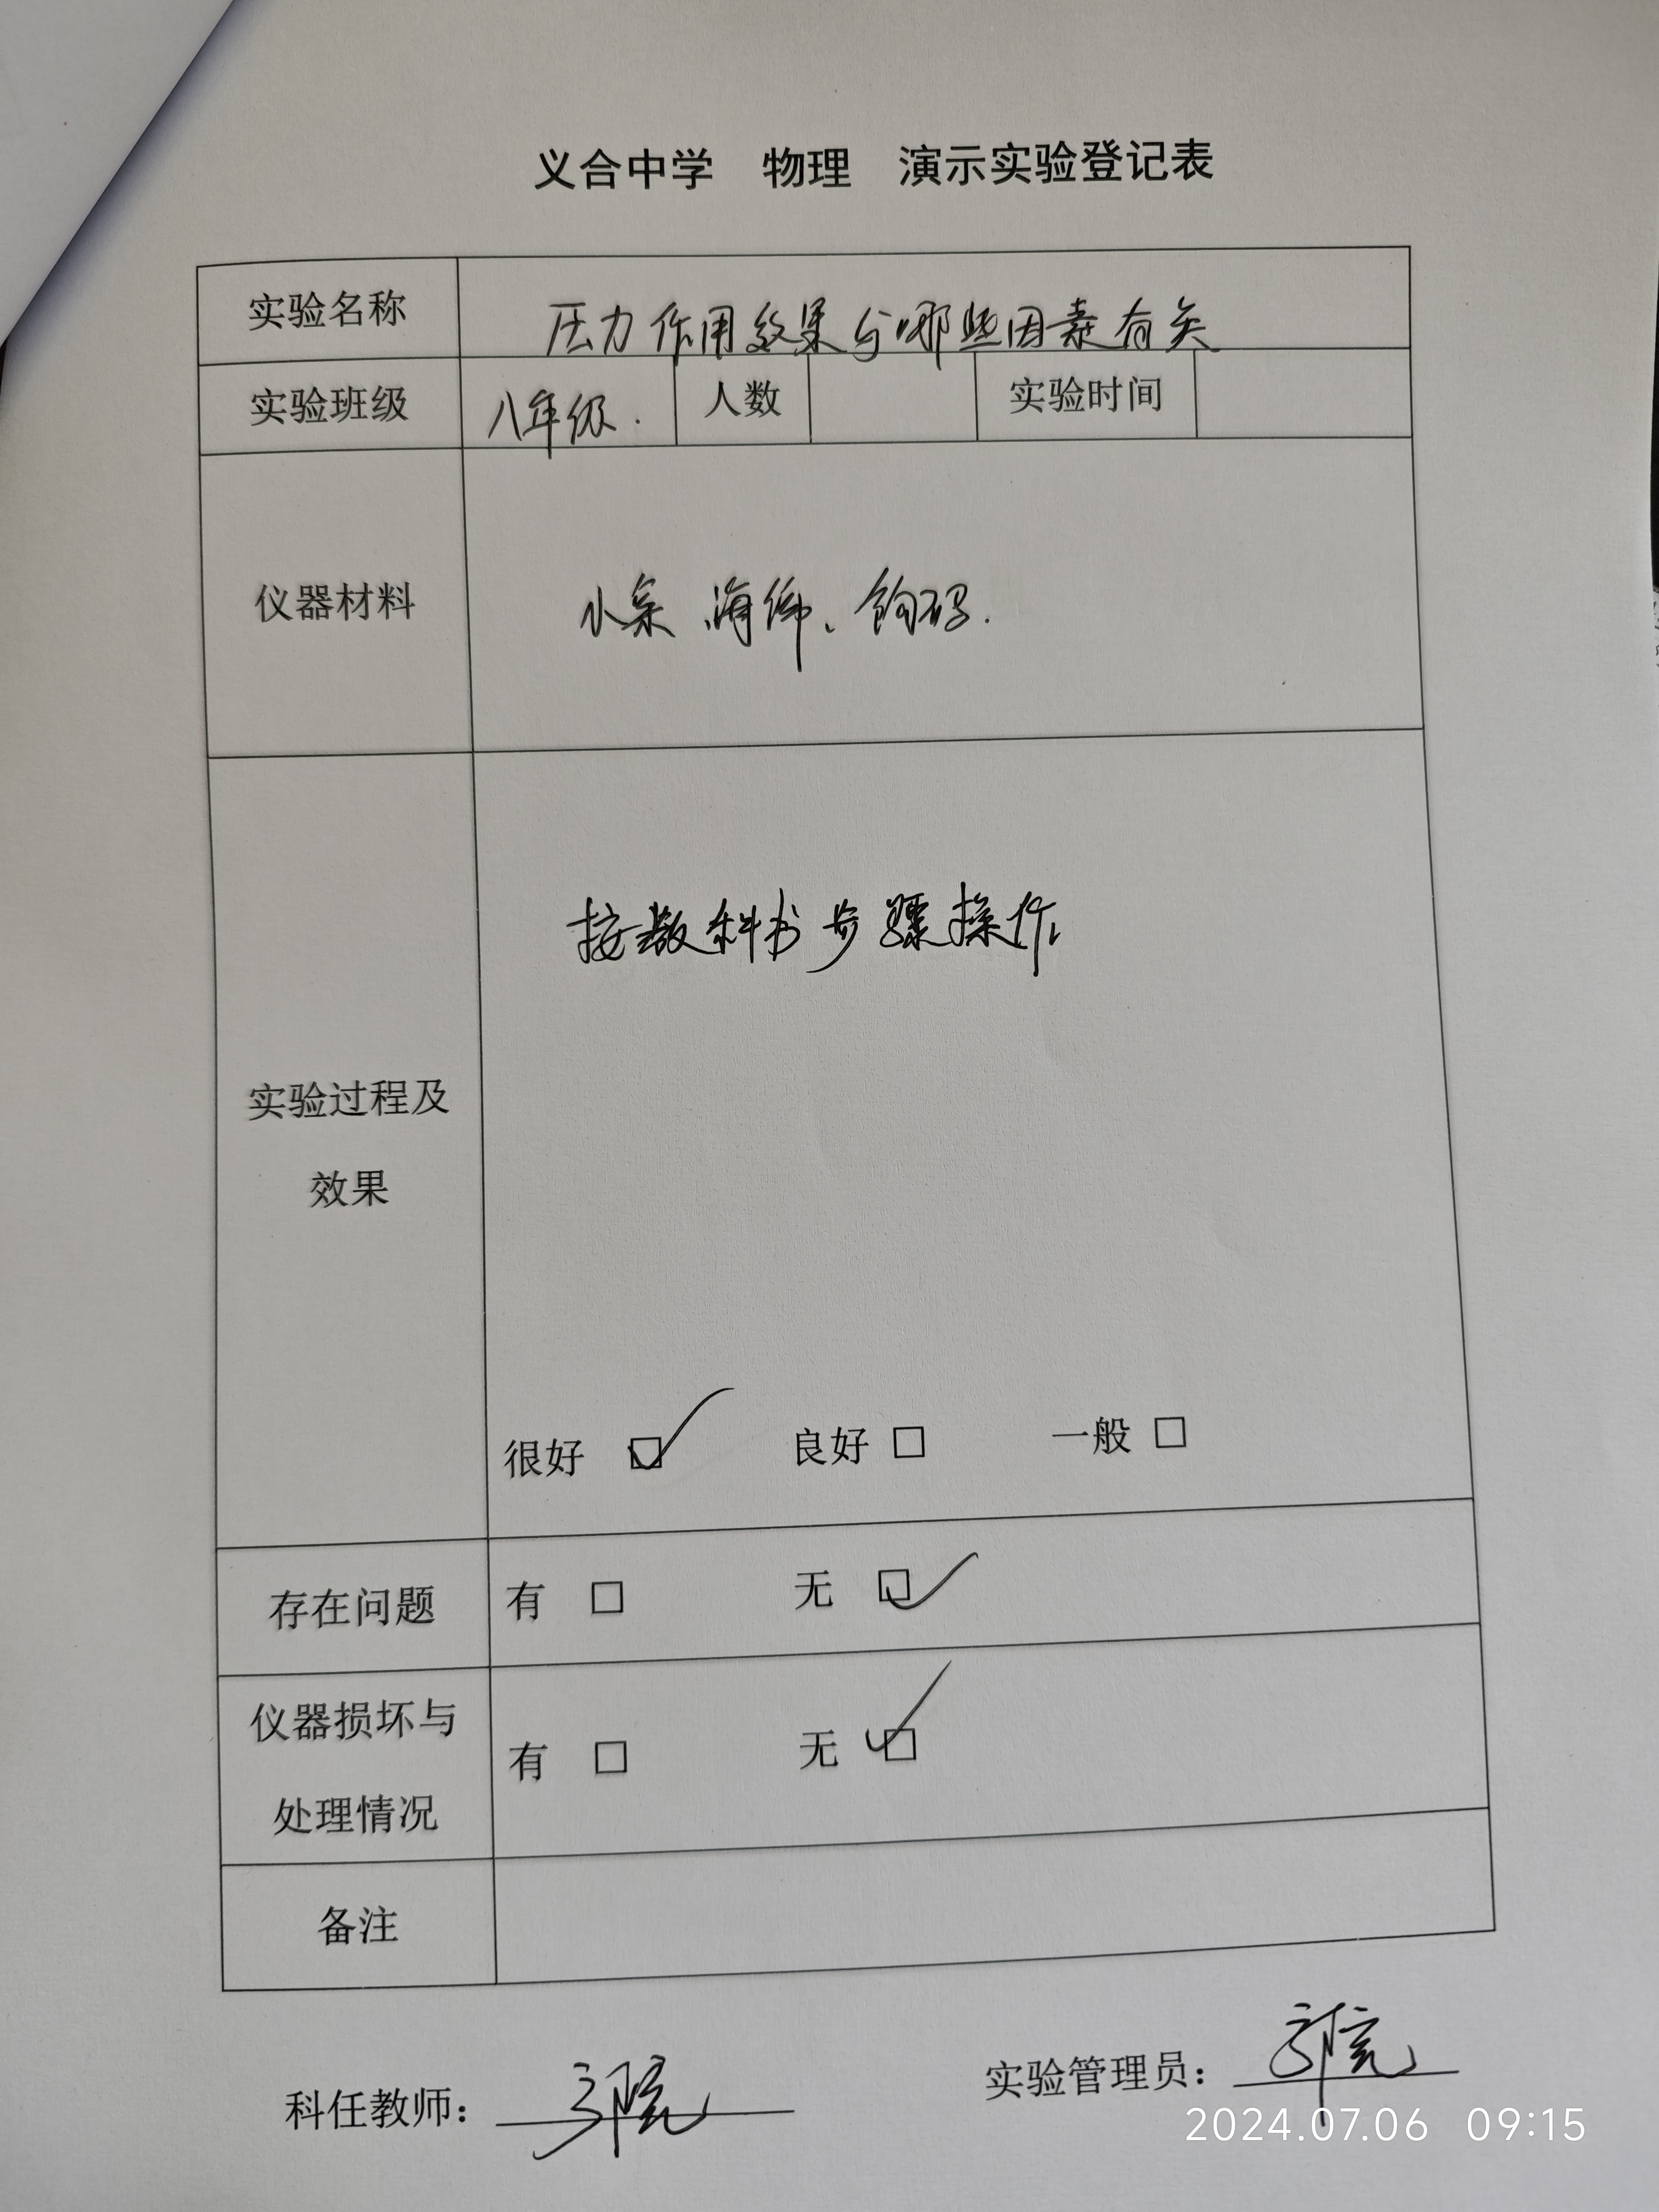 义合中学 物理 演示实验登记表
实验名称 压力作用效果与哪些因素有关
实验班级 八年级. 人数 实验时间
仪器材料 小桌、海绵、钩码.
按教科书步骤操作
实验过程及
效果
很好 ☑ 良好 □ 一般 □
存在问题 有 □ 无 ☑
仪器损坏与
处理情况
有 □ 无 ☑
备注
科任教师: 实验管理员:
2024.07.06 09:15